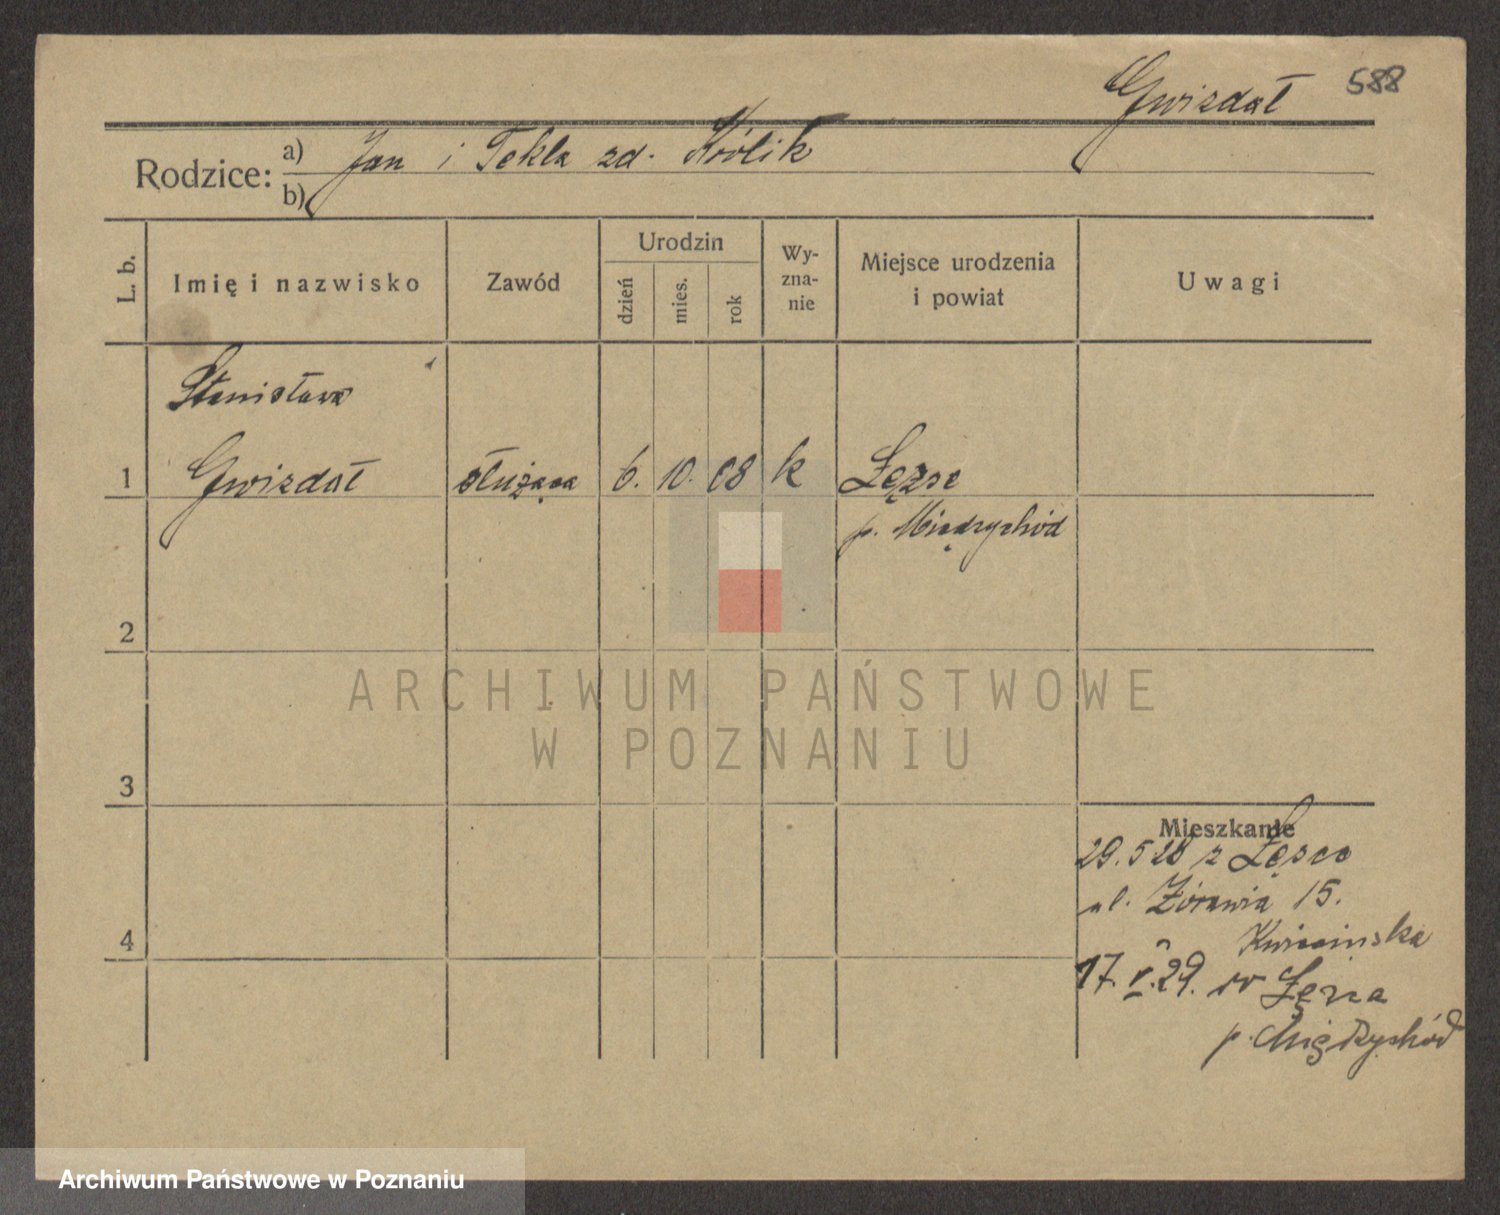 Gwizdał 588
Rodzice: a) Jan i Tekla zd. Królik
b)
L. b.
Imię i nazwisko
Zawód
Urodzin
dzień
mies.
rok
Wy-
zna-
nie
Miejsce urodzenia
i powiat
Uwagi
Stanisława
1 Gwizdał służąca 6. 10. 08 k Łężce
p. Międzychód
2
ARCHIWUM PAŃSTWOWE
W POZNANIU
3
Mieszkanie
29.5 28 z Łężce
ul. Żórawia 15.
4
17. V. 29. w
p. Międzychód
Archiwum Państwowe w Poznaniu